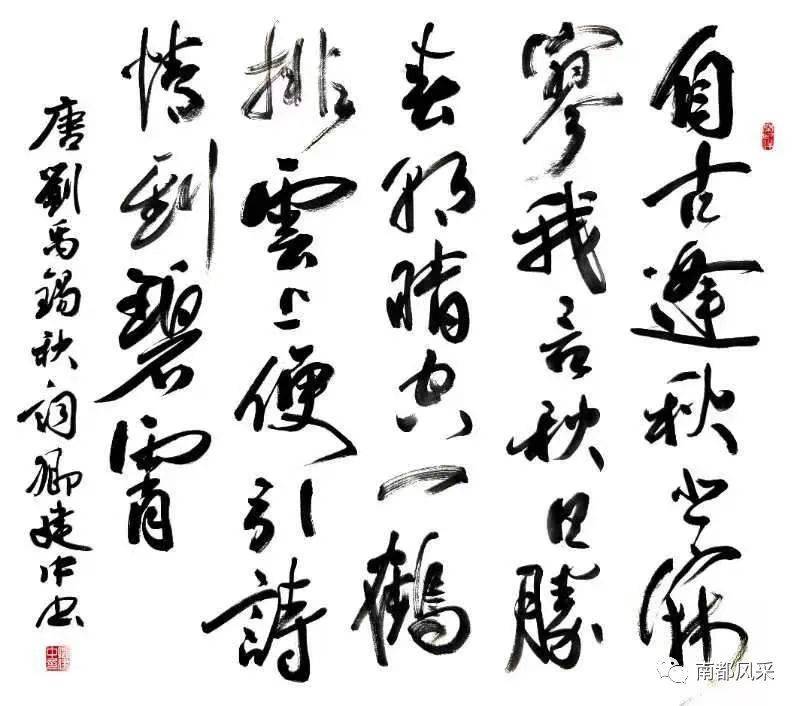 自古逢秋悲寂
寥我言秋日勝
春朝晴空一鶴
排雲上便引詩
情到碧霄
唐劉禹錫秋詞卿建中书
南都风采